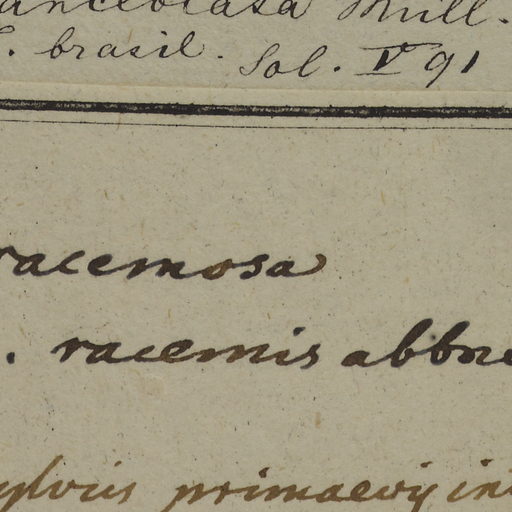 anceolata Müll.
brasil. Sol. V 91
racemosa
. racemis abbre
ylvis primaevis in